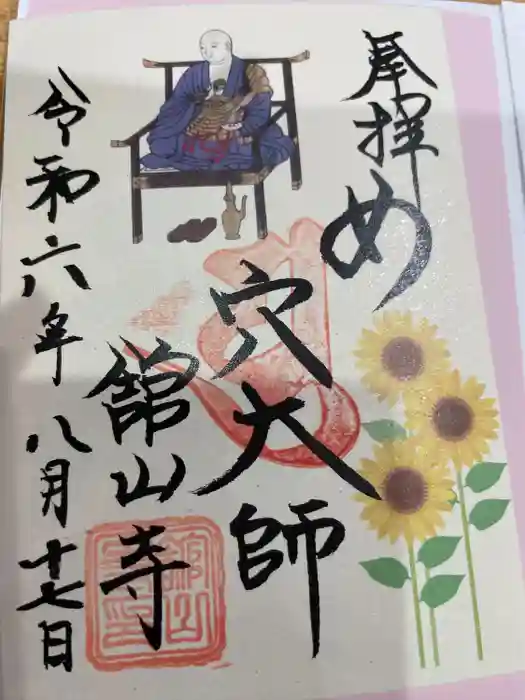 奉拝
め
穴大師
舘山寺
令和六年八月十七日